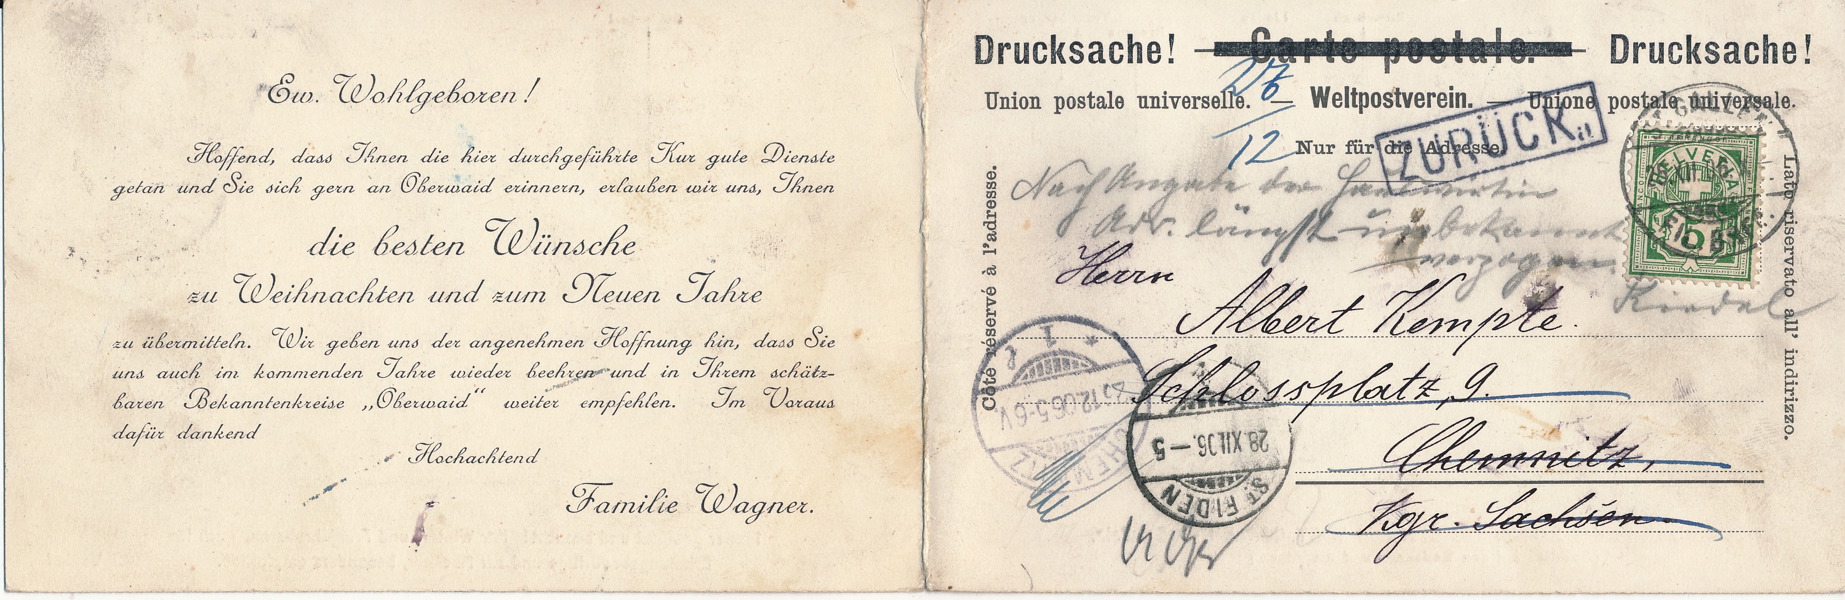 Ew. Wohlgeboren!
Hoffend, dass Ihnen die hier durchgeführte Kur gute Dienste
getan und Sie sich gern an Oberwaid erinnern, erlauben wir uns, Ihnen
die besten Wünsche
zu Weihnachten und zum Neuen Jahre
zu übermitteln. Wir geben uns der angenehmen Hoffnung hin, dass Sie
uns auch im kommenden Jahre wieder beehren und in Ihrem schätz-
baren Bekanntenkreise „Oberwaid“ weiter empfehlen. Im Voraus
dafür dankend
Hochachtend
Familie Wagner.
Drucksache! Carte postale. Drucksache!
Union postale universelle. — Weltpostverein. — Unione postale universale.
26
12
Nur für die Adresse
ZURÜCK
Côté réservé à l'adresse.
Lato riservato all' indirizzo.
Nach Angabe der Hauswirtin
Adr. längst unbekannt
verzogen
Riedel
Herrn
Albert Kempte.
Schlossplatz, 9.
Chemnitz,
Kgr. Sachsen.
ST. GALLEN
HELVETIA
5
CHEMNITZ
12.06.5-6V
1
28.XII.06.–5
ST. FIDEN